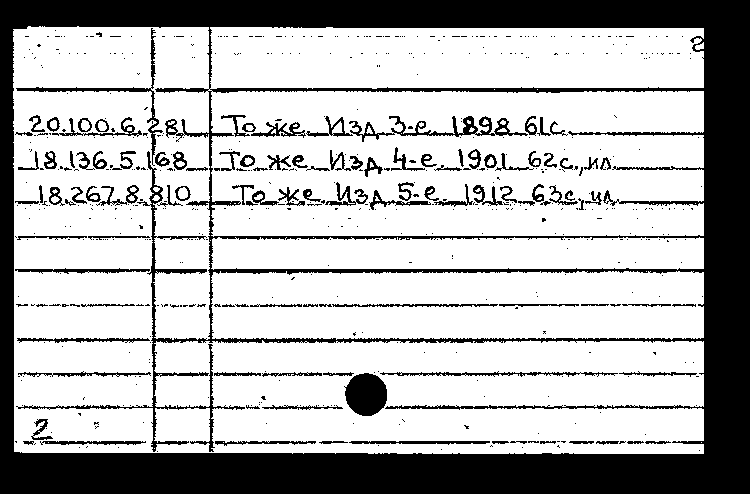 2
20.100.6.281 То же. Изд. 3-е. 1898. 61с.
18.136.5.168 То же. Изд. 4-е. 1901. 62с., ил.
18.267.8.810 То же. Изд. 5-е. 1912. 63с., ил.
2